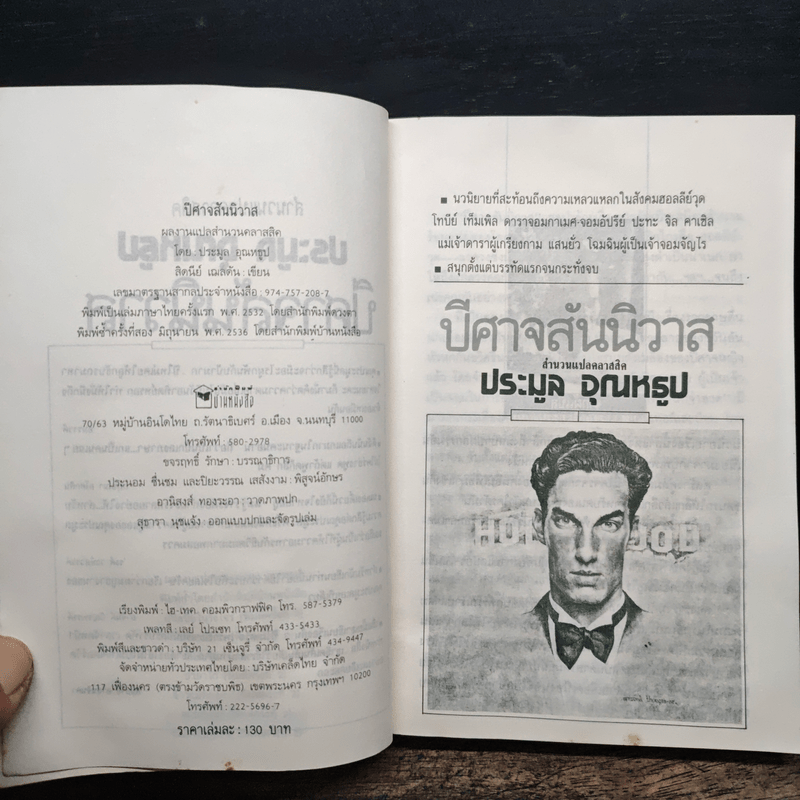 ปีศาจสันนิวาส
ผลงานแปลสำนวนคลาสสิค
โดย : ประมูล อุณหธูป
สิดนีย์ เฌลดัน : เขียน
เลขมาตรฐานสากลประจำหนังสือ : 974-757-208-7
พิมพ์เป็นเล่มภาษาไทยครั้งแรก พ.ศ. 2532 โดยสำนักพิมพ์ดวงตา
พิมพ์ซ้ำครั้งที่สอง มิถุนายน พ.ศ. 2536 โดยสำนักพิมพ์บ้านหนังสือ
สำนักพิมพ์
บ้านหนังสือ
70/63 หมู่บ้านอินโดไทย ถ.รัตนาธิเบศร์ อ.เมือง จ.นนทบุรี 11000
โทรศัพท์ : 580-2978
ขจรฤทธิ์ รักษา : บรรณาธิการ
ประนอม ชื่นชม และปิยะวรรณ เสสังงาม : พิสูจน์อักษร
อานิสงส์ ทองระอา : วาดภาพปก
สุธารา นุชแจ้ง : ออกแบบปกและจัดรูปเล่ม
เรียงพิมพ์ : ไฮ-เทค คอมพิวกราฟฟิค โทร. 587-5379
เพลทสี : เลย์ โปรเซท โทรศัพท์ 433-5433
พิมพ์สีและขาวดำ : บริษัท 21 เซ็นจูรี่ จำกัด โทรศัพท์ 434-9447
จัดจำหน่ายทั่วประเทศไทยโดย : บริษัทเคล็ดไทย จำกัด
117 เฟื่องนคร (ตรงข้ามวัดราชบพิธ) เขตพระนคร กรุงเทพฯ 10200
โทรศัพท์ : 222-5696-7
ราคาเล่มละ : 130 บาท
■ นวนิยายที่สะท้อนถึงความเหลวแหลกในสังคมฮอลลีย์วุด
โทบีย์ เท็มเพิล ดาราจอมกาเมศ-จอมอัปรีย์ ปะทะ จิล คาเซิล
แม่เจ้าดาราผู้เกรียงกาม แสนยั่ว โฉมฉินผู้เป็นเจ้าจอมจัญไร
■ สนุกตั้งแต่บรรทัดแรกจนกระทั่งจบ
ปีศาจสันนิวาส
สำนวนแปลคลาสสิค
ประมูล อุณหธูป